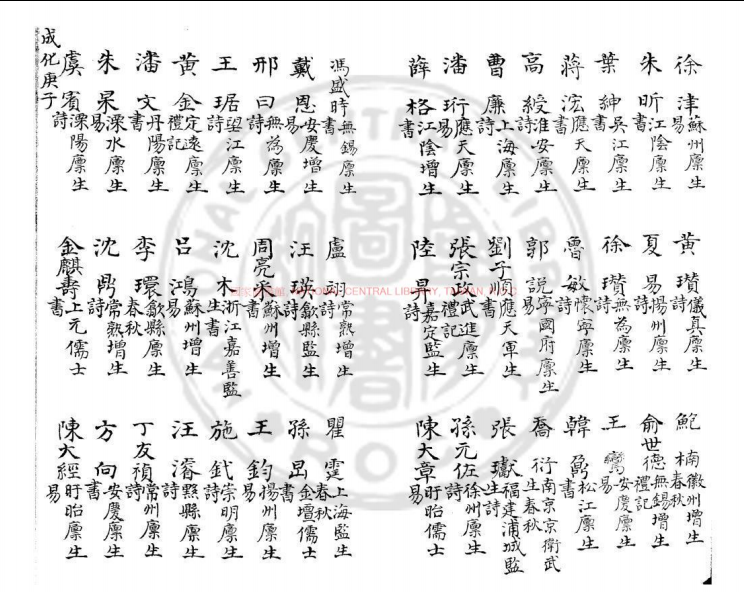 徐津 蘇州廪生 易 黄瓚 儀真廪生 詩 鮑楠 徽州增生 春秋
朱昕 江陰廪生 易 夏易 揚州廪生 詩 俞世德 無錫增生 禮記
葉紳 吳江廪生 書 徐瓚 無為廪生 詩 王鸞 安慶廪生 易
蔣浤 應天廪生 書 魯敏 懷寧廪生 詩 韓鼐 松江廪生 書
高綬 淮安廪生 詩 郭說 寧國府廪生 易 喬衍 南京京衛武生 春秋
曹廉 上海廪生 詩 劉子順 應天軍生 書 張瓛 福建浦城監生 詩
潘珩 應天廪生 易 張宗政 武進廪生 禮記 孫元佐 徐州廪生 詩
薛格 江陰增生 書 陸昇 嘉定監生 詩 陳大章 盱眙儒士 易
馮盛時 無錫廪生 書 盧翊 常熟增生 詩 瞿霆 上海監生 春秋
戴恩 安慶增生 易 汪瑛 歙縣監生 詩 孫昂 金壇儒士 書
邢曰 無為廪生 詩 周亮采 蘇州增生 書 王鈞 揚州廪生 易
王琚 望江廪生 詩 沈木 浙江嘉善監生 書 施釴 崇明廪生 詩
黄金 定遠廪生 禮記 吕鴻 蘇州增生 易 汪濬 黟縣廪生 詩
潘文 丹陽廪生 書 李環 歙縣廪生 春秋 丁友禎 常州廪生 詩
朱杲 溧水廪生 易 沈鼎 常熟增生 詩 方向 安慶廪生 書
虞賓 溧陽廪生 詩 金麒壽 上元儒士 書 陳大經 盱眙廪生 易
成化庚子